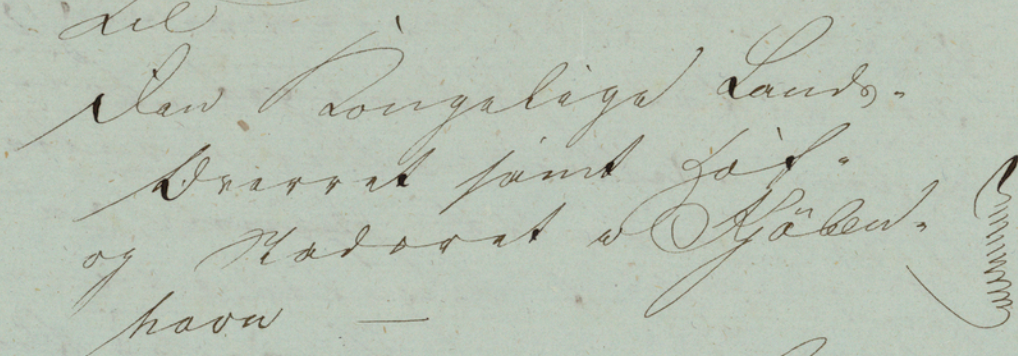 Til
Den Kongelige Lands-
Overret samt Hof-
og Stadsret i Kjöben-
havn —